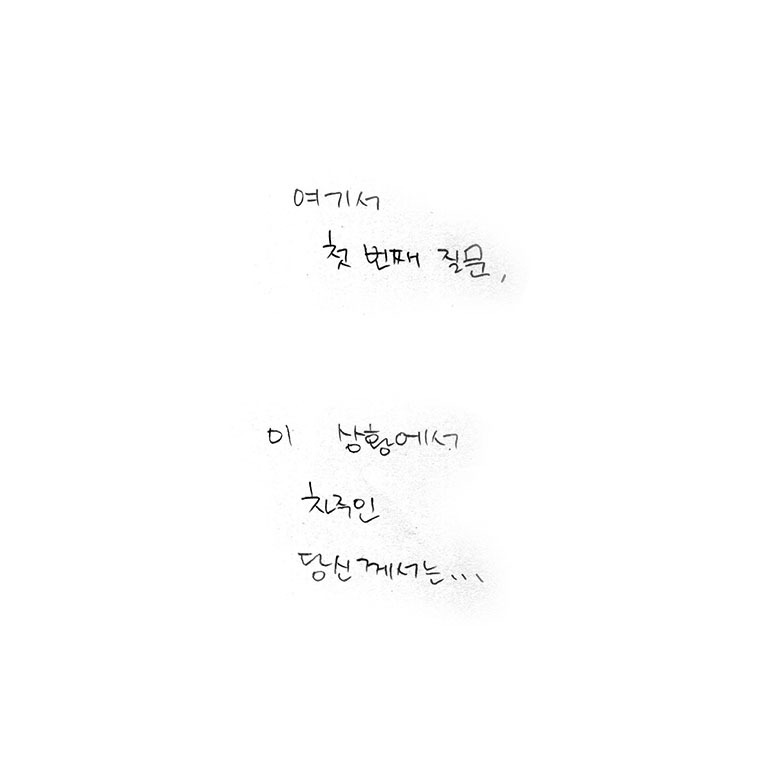 여기서
첫 번째 질문,
이 상황에서
차주인
당신께서는...